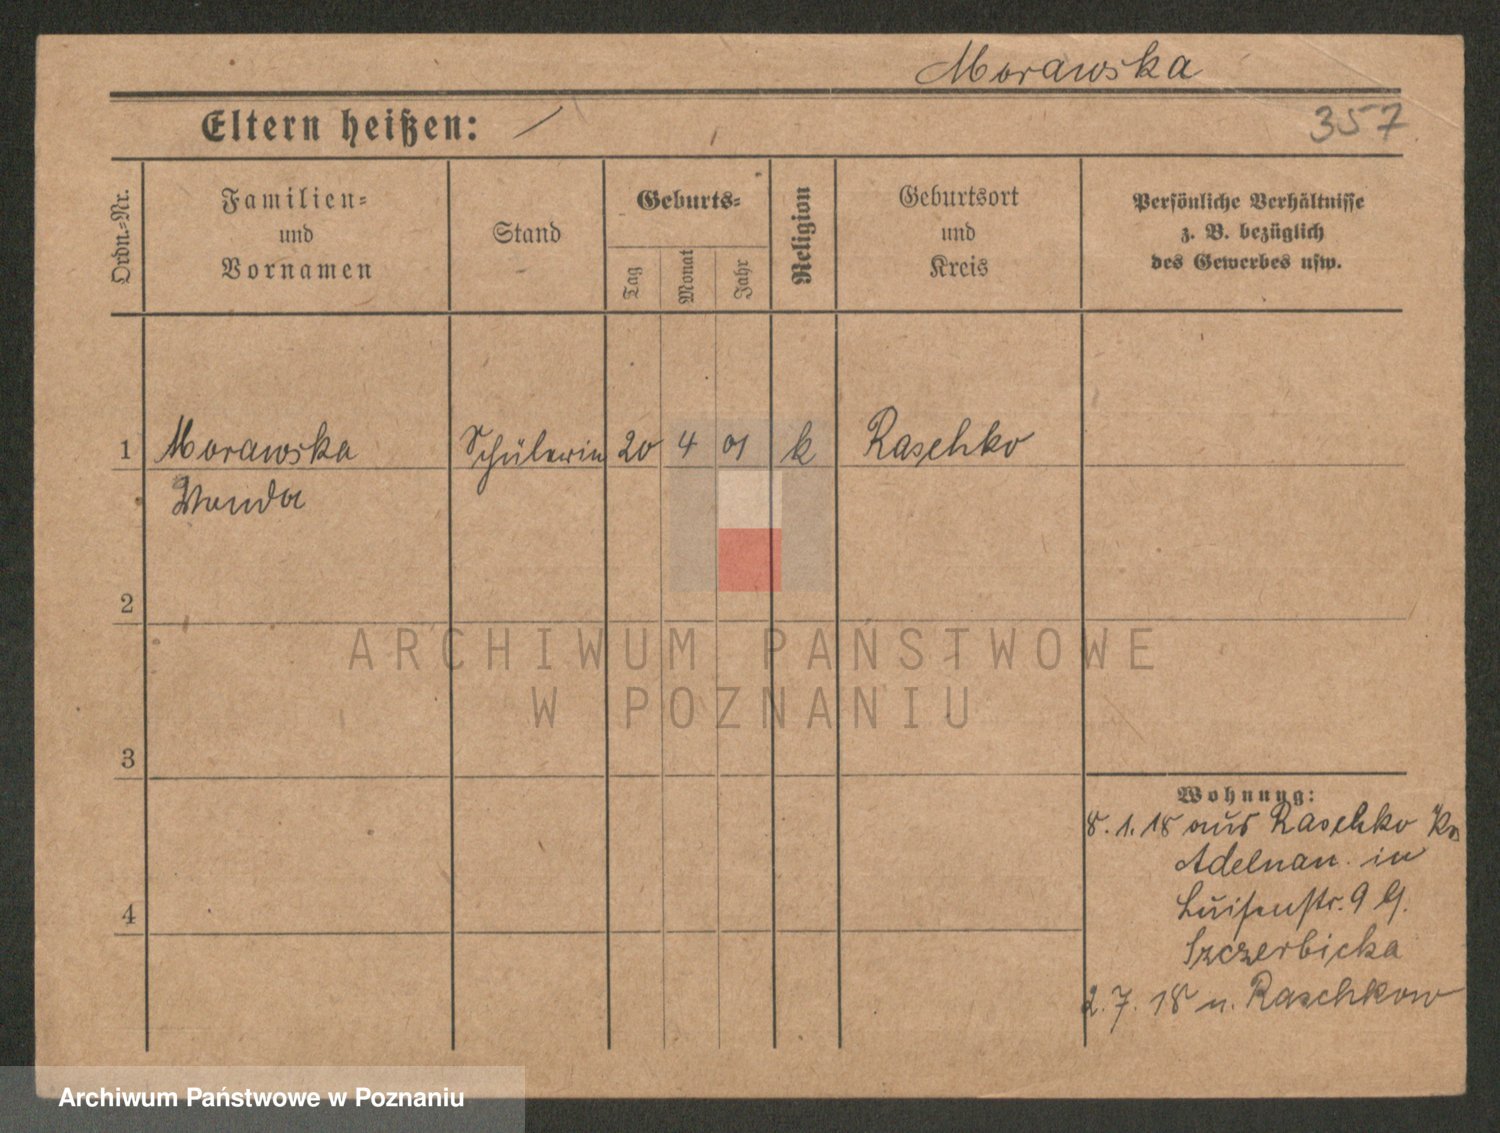 Morawska
357
Eltern heißen: /
Ordn.-Nr.
Familien-
und
Vornamen
Stand
Geburts-
Tag
Monat
Jahr
Religion
Geburtsort
und
Kreis
Persönliche Verhältnisse
z. B. bezüglich
des Gewerbes usw.
1 Morawska Schülerin 20 4 01 k Raschko
Wanda
2
3
4
Wohnung:
8.1.18 aus Raschko Kr
Adelnau in
Luisenstr. 9 b.
Szczerbicka
2.7.18 n. Raschkow
ARCHIWUM PAŃSTWOWE
W POZNANIU
Archiwum Państwowe w Poznaniu